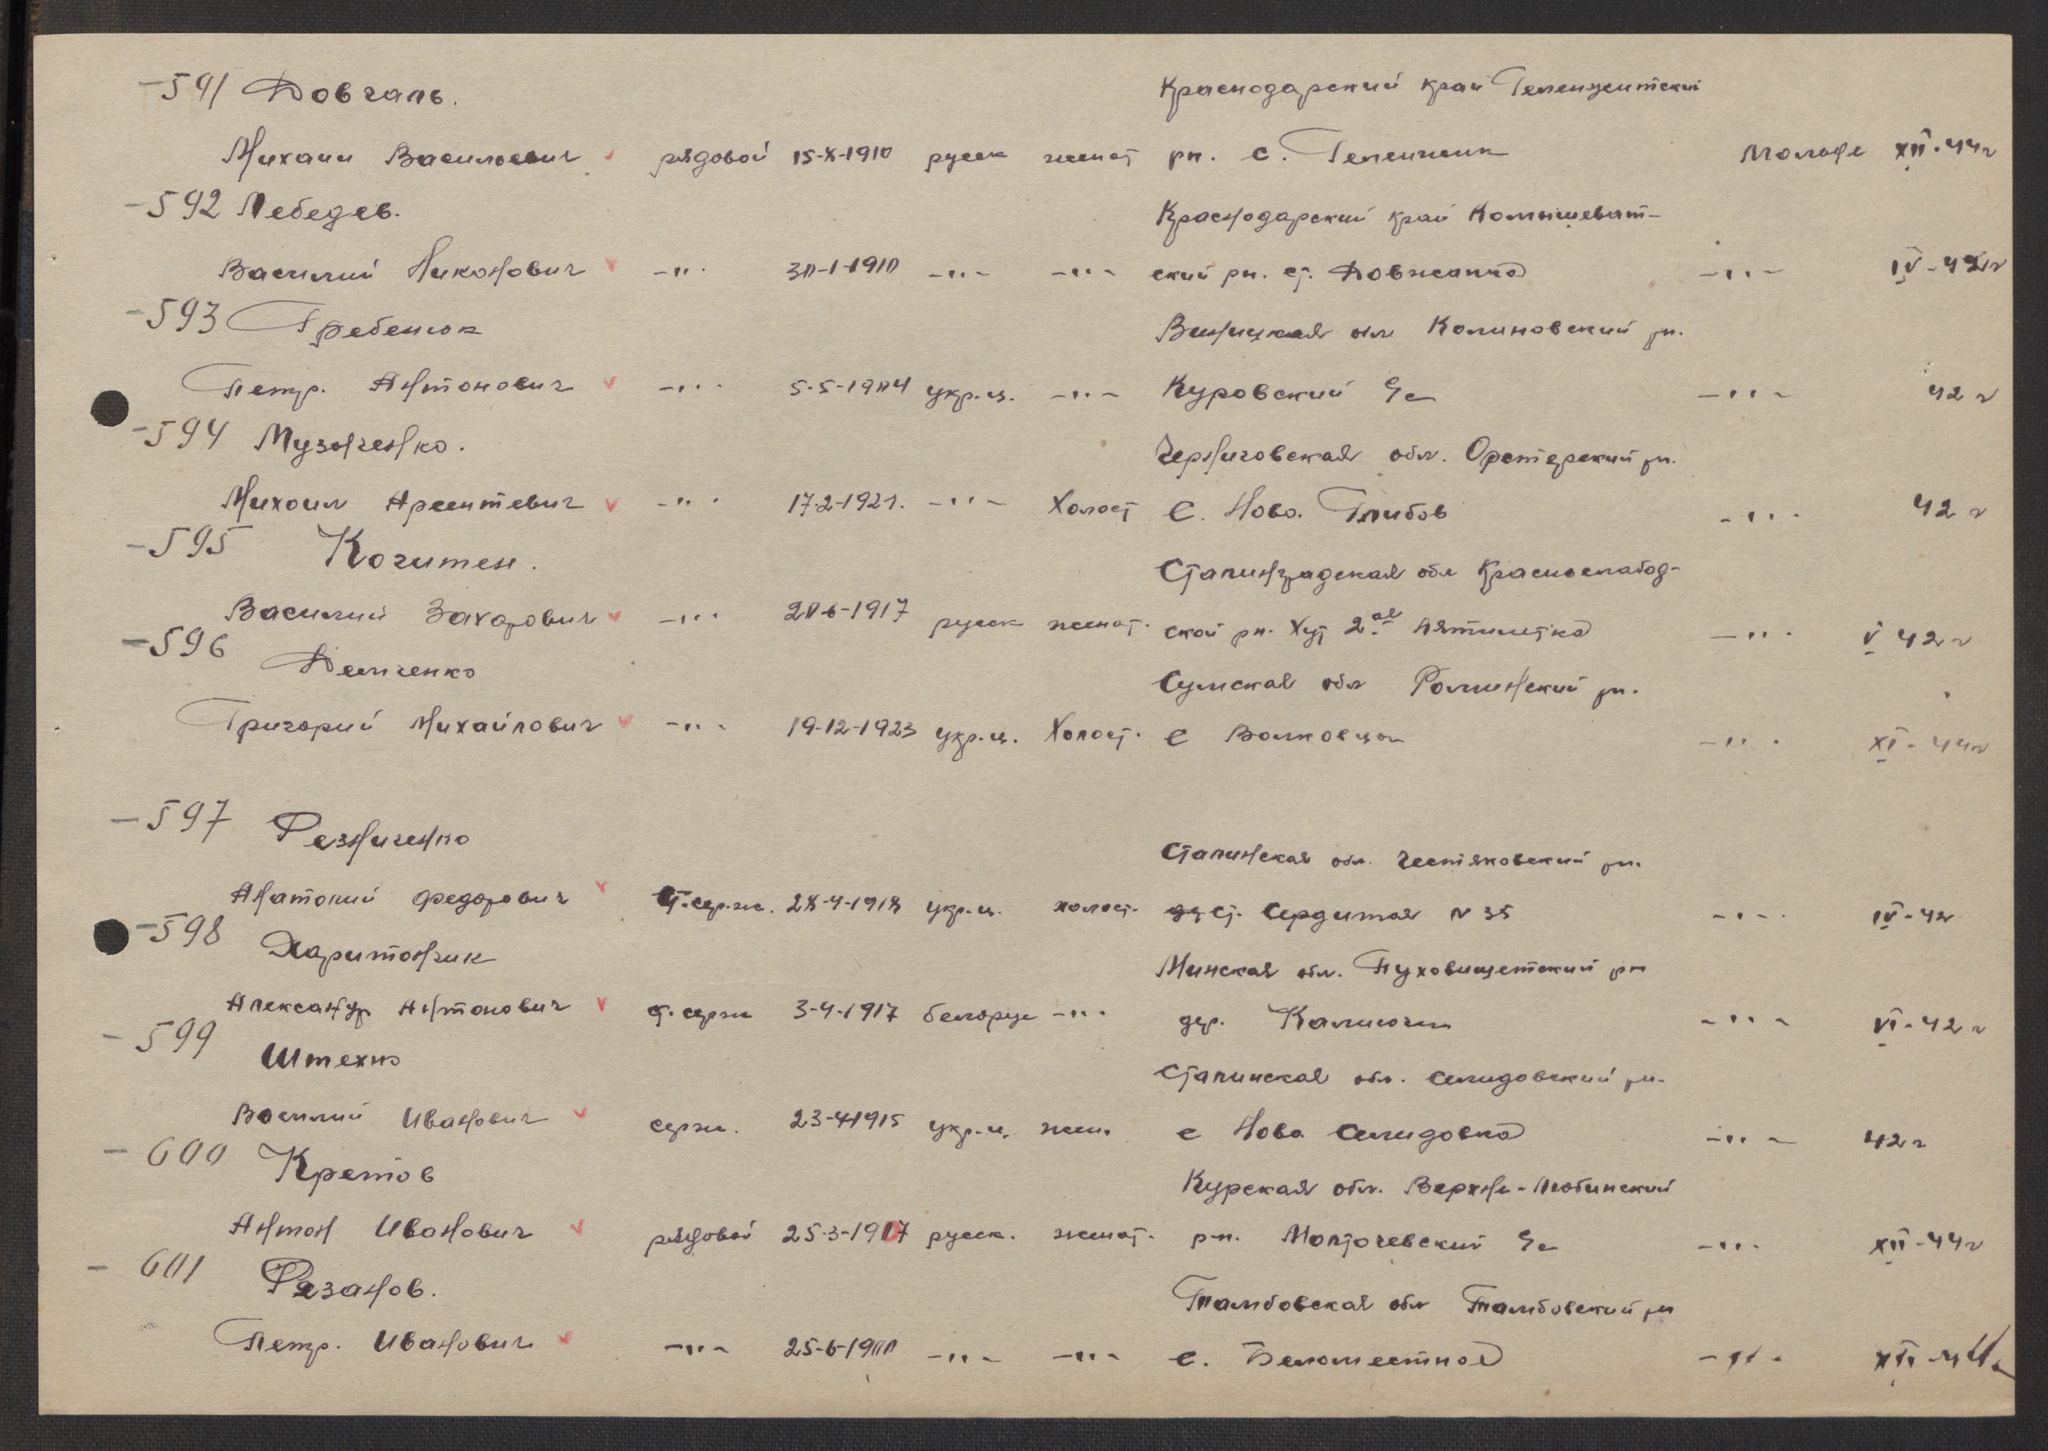 -591 Довгаль. Краснодарский край Геленджитский
Михаил Васильевич рядовой 15-X-1910 русск женат рн. с. Геленжик Мольде XII-44г
-592 Лебедев. Краснодарский край Камышеват-
Василий Никонович -"- 30-1-1910 -"- -"- ский рн. ст. Довжанка -"- IV-42г
-593 Гребенюк Виницкая обл Калиновский рн.
Петр. Антонович -"- 5-5-1904 укр.ц. -"- Куровский с/с -"- 42 г
-594 Музыченко. Черниговская обл. Орстерский рн.
Михаил Арсентевич -"- 17-2-1921. -"- Холост с. Ново. Глибов -"- 42 г
-595 Сталинградская обл Краснослабод-
Василий Захарович -"- 20-6-1917 русск женат. ской рн. Хут 2ая пятилетка -"- V 42 г
-596 Демченко Сумская обл Роминский рн.
Григорий Михайлович -"- 19-12-1923 укр.ц. Холост. с Волковцы -"- XI-44г
-597 Резниченко Сталинская обл. Честяковский рн.
Анатолий Федорович ст.серж. 28-4-1918 укр.ц. холост. ст. Сердитая N 35 -"- IV-42
-598 Харитончик Минская обл. рн
Александр Антонович ст.серж 3-4-1917 белорус -"- дер. -"- VI-42 г
-599 Штехно Сталинская обл. Селидовский рн.
Василий Иванович серж. 23-4-1915 укр.ц. жен. с Ново Селидовка -"- 42 г
-600 Кретов Курская обл. Верхне-Любинский
Антон Иванович рядовой 25-3-1907 русск. женат. р-н. с/с -"- XII-44г
- 601 Рязанов. Тамбовская обл Тамбовский рн
Петр. Иванович -"- 25-6-1900 -"- -"- с. Беломестная -"- XII-44г